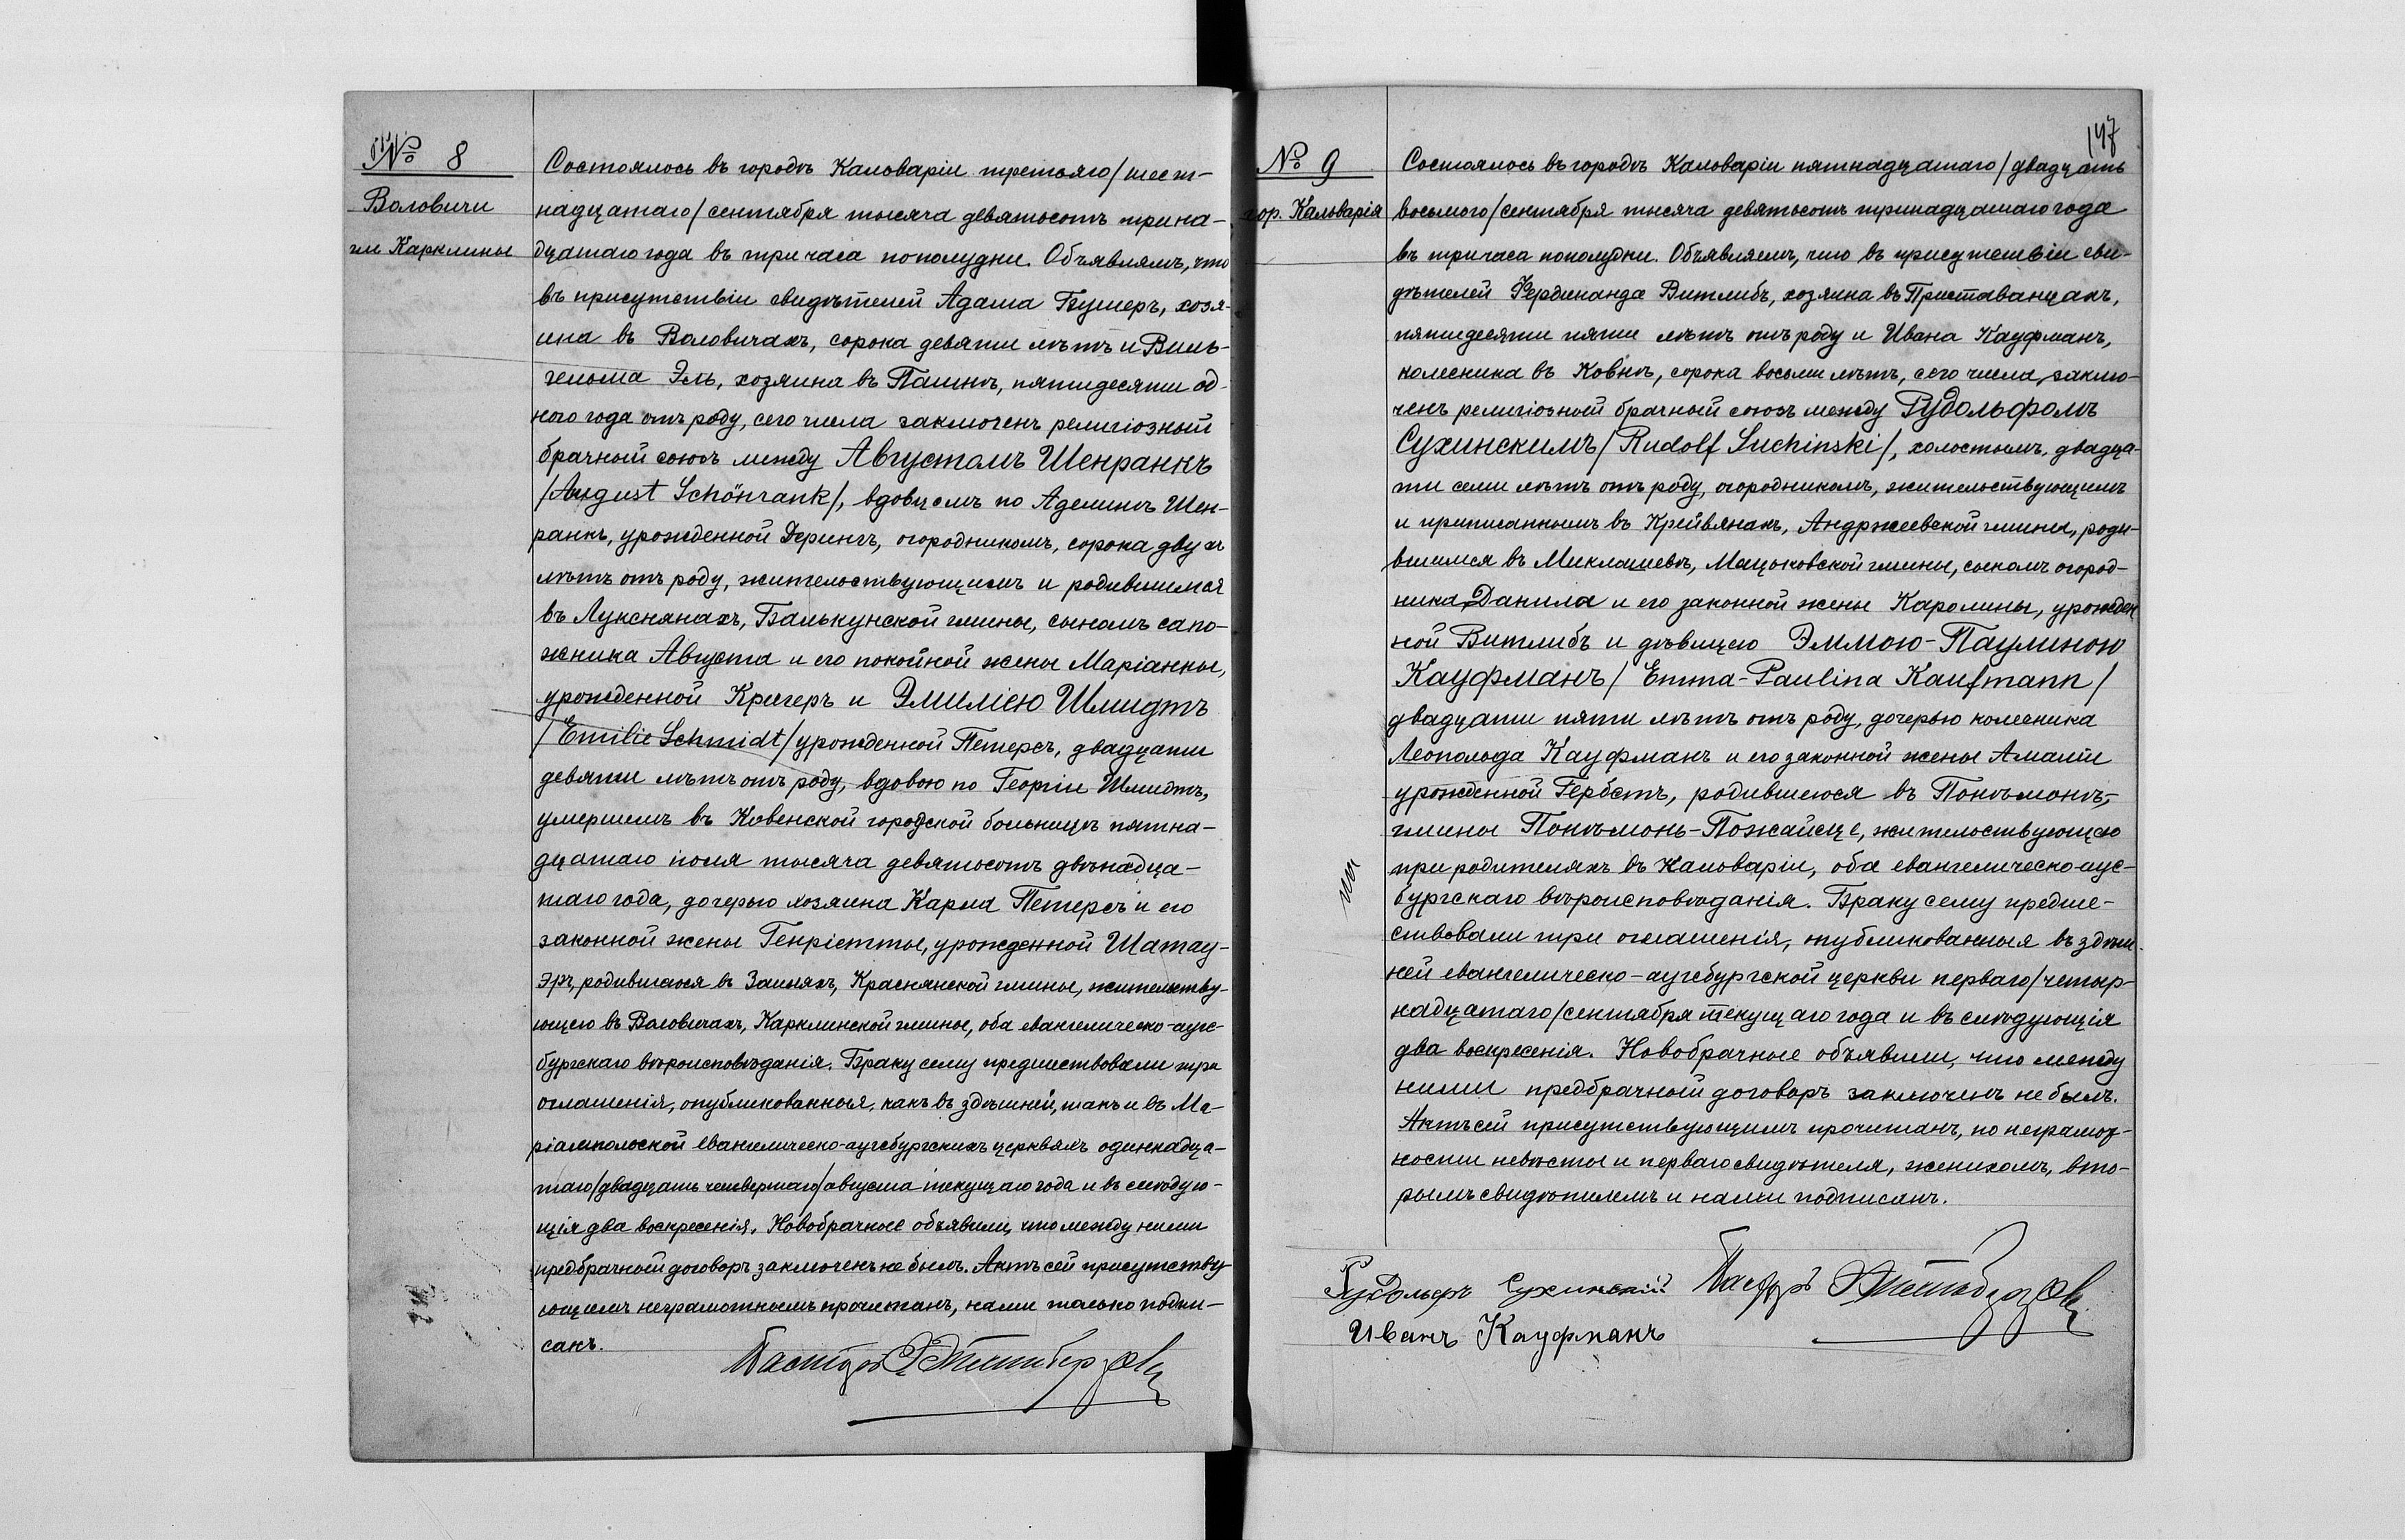 № 8
Воловичи
гм Карклины
Состоялось въ городѣ Кальваріи третьяго/шест-
надцатаго/сентября тысяча девятьсотъ трина-
дцатаго года въ три часа пополудни. Объявляемъ, что
въ присутствіи свидѣтелей Адама Гушеръ, хозя-
ина въ Воловичахъ, сорока девяти лѣтъ и Виль-
гельма Эль, хозяина въ Пашнѣ, пятидесяти од-
ного года отъ роду, сего числа заключенъ религіозный
брачный союзъ между Августомъ Шенранкъ
/August Schönrank/, вдовцемъ по Аделинѣ Шен-
ранкъ, урожденной Дерингъ, огородникомъ, сорока двухъ
лѣтъ отъ роду, жительствующимъ и родившимся
въ Лукснянахъ, Балькунской гмины, сыномъ сапо-
жника Августа и его покойной жены Маріанны,
урожденной Кригеръ и Эмиліею Шмидтъ
/Emilie Schmidt/ урожденной Петерсъ, двадцати
девяти лѣтъ отъ роду, вдовою по Георгіи Шмидтъ,
умершемъ въ Ковенской городской больницѣ пятна-
дцатаго іюля тысяча девятьсотъ двѣнадца-
таго года, дочерью хозяина Карла Петерсъ и его
законной жены Генріетты, урожденной Шатау-
эръ, родившаяся въ Заиняхъ, Краснянской гмины, жительству-
ющею въ Воловичахъ, Карклинской гмины, оба евангелическо-аугс-
бургскаго вѣроисповѣданія. Браку сему предшествовали три
оглашенія, опубликованныя, какъ въ здѣшней, такъ и въ Ма-
ріампольской евангелическо-аугсбургскихъ церквяхъ одиннадца-
таго/двадцать четвертаго/августа текущаго года и въ слѣдую-
щія два воскресенія. Новобрачные объявили, что между ними
предбрачный договоръ заключенъ не былъ. Актъ сей присутству-
ющимъ неграмотнымъ прочитанъ, нами только подпи-
санъ.
Пасторъ
147
№ 9
гор. Кальварія
Состоялось въ городѣ Кальваріи пятнадцатаго/двадцать
восьмого/сентября тысяча девятьсотъ тринадцатаго года
въ три часа пополудни. Объявляемъ, что въ присутствіи сви-
дѣтелей Фердинанда Витлибъ, хозяина въ Приставанцахъ,
пятидесяти пяти лѣтъ отъ роду и Ивана Кауфманъ,
колесника въ Ковнѣ, сорока восьми лѣтъ, сего числа, заклю-
ченъ религіозный брачный союзъ между Рудольфомъ
Сухинскимъ/Rudolf Suchinski/, холостымъ, двадца-
ти семи лѣтъ отъ роду, огородникомъ, жительствующимъ
и приписаннымъ въ Крейвянахъ, Андржеевской гмины, роди-
вшимся въ Миклашевѣ, Мацьковской гмины, сыномъ огород-
ника Данила и его законной жены Каролины, урожден
ной Витлибъ и дѣвицею Эммою-Паулиною
Кауфманъ/ Emma-Paulina Kaufmann/
двадцати пяти лѣтъ отъ роду, дочерью колесника
Леопольда Кауфманъ и его законной жены Амаліи
урожденной Гербстъ, родившеюся въ Понѣмонѣ,
гмины Понѣмонь-Пожайсце, жительствующею
при родителяхъ въ Кальваріи, оба евангелическо-аугс-
бургскаго вѣроисповѣданія. Браку сему предше-
ствовали три оглашенія, опубликованныя въ здѣш-
ней евангелическо-аугсбургской церкви перваго/четыр-
надцатаго/сентября текущаго года и въ слѣдующія
два воскресенія. Новобрачные объявили, что между
ними предбрачный договоръ заключенъ не былъ.
Актъ сей присутствующимъ прочитанъ, по неграмот-
ности невѣсты и перваго свидѣтеля, женихомъ, вто-
рымъ свидѣтелемъ и нами подписанъ.
Рудольфъ Сухинскій Пасторъ
Иванъ Кауфманъ